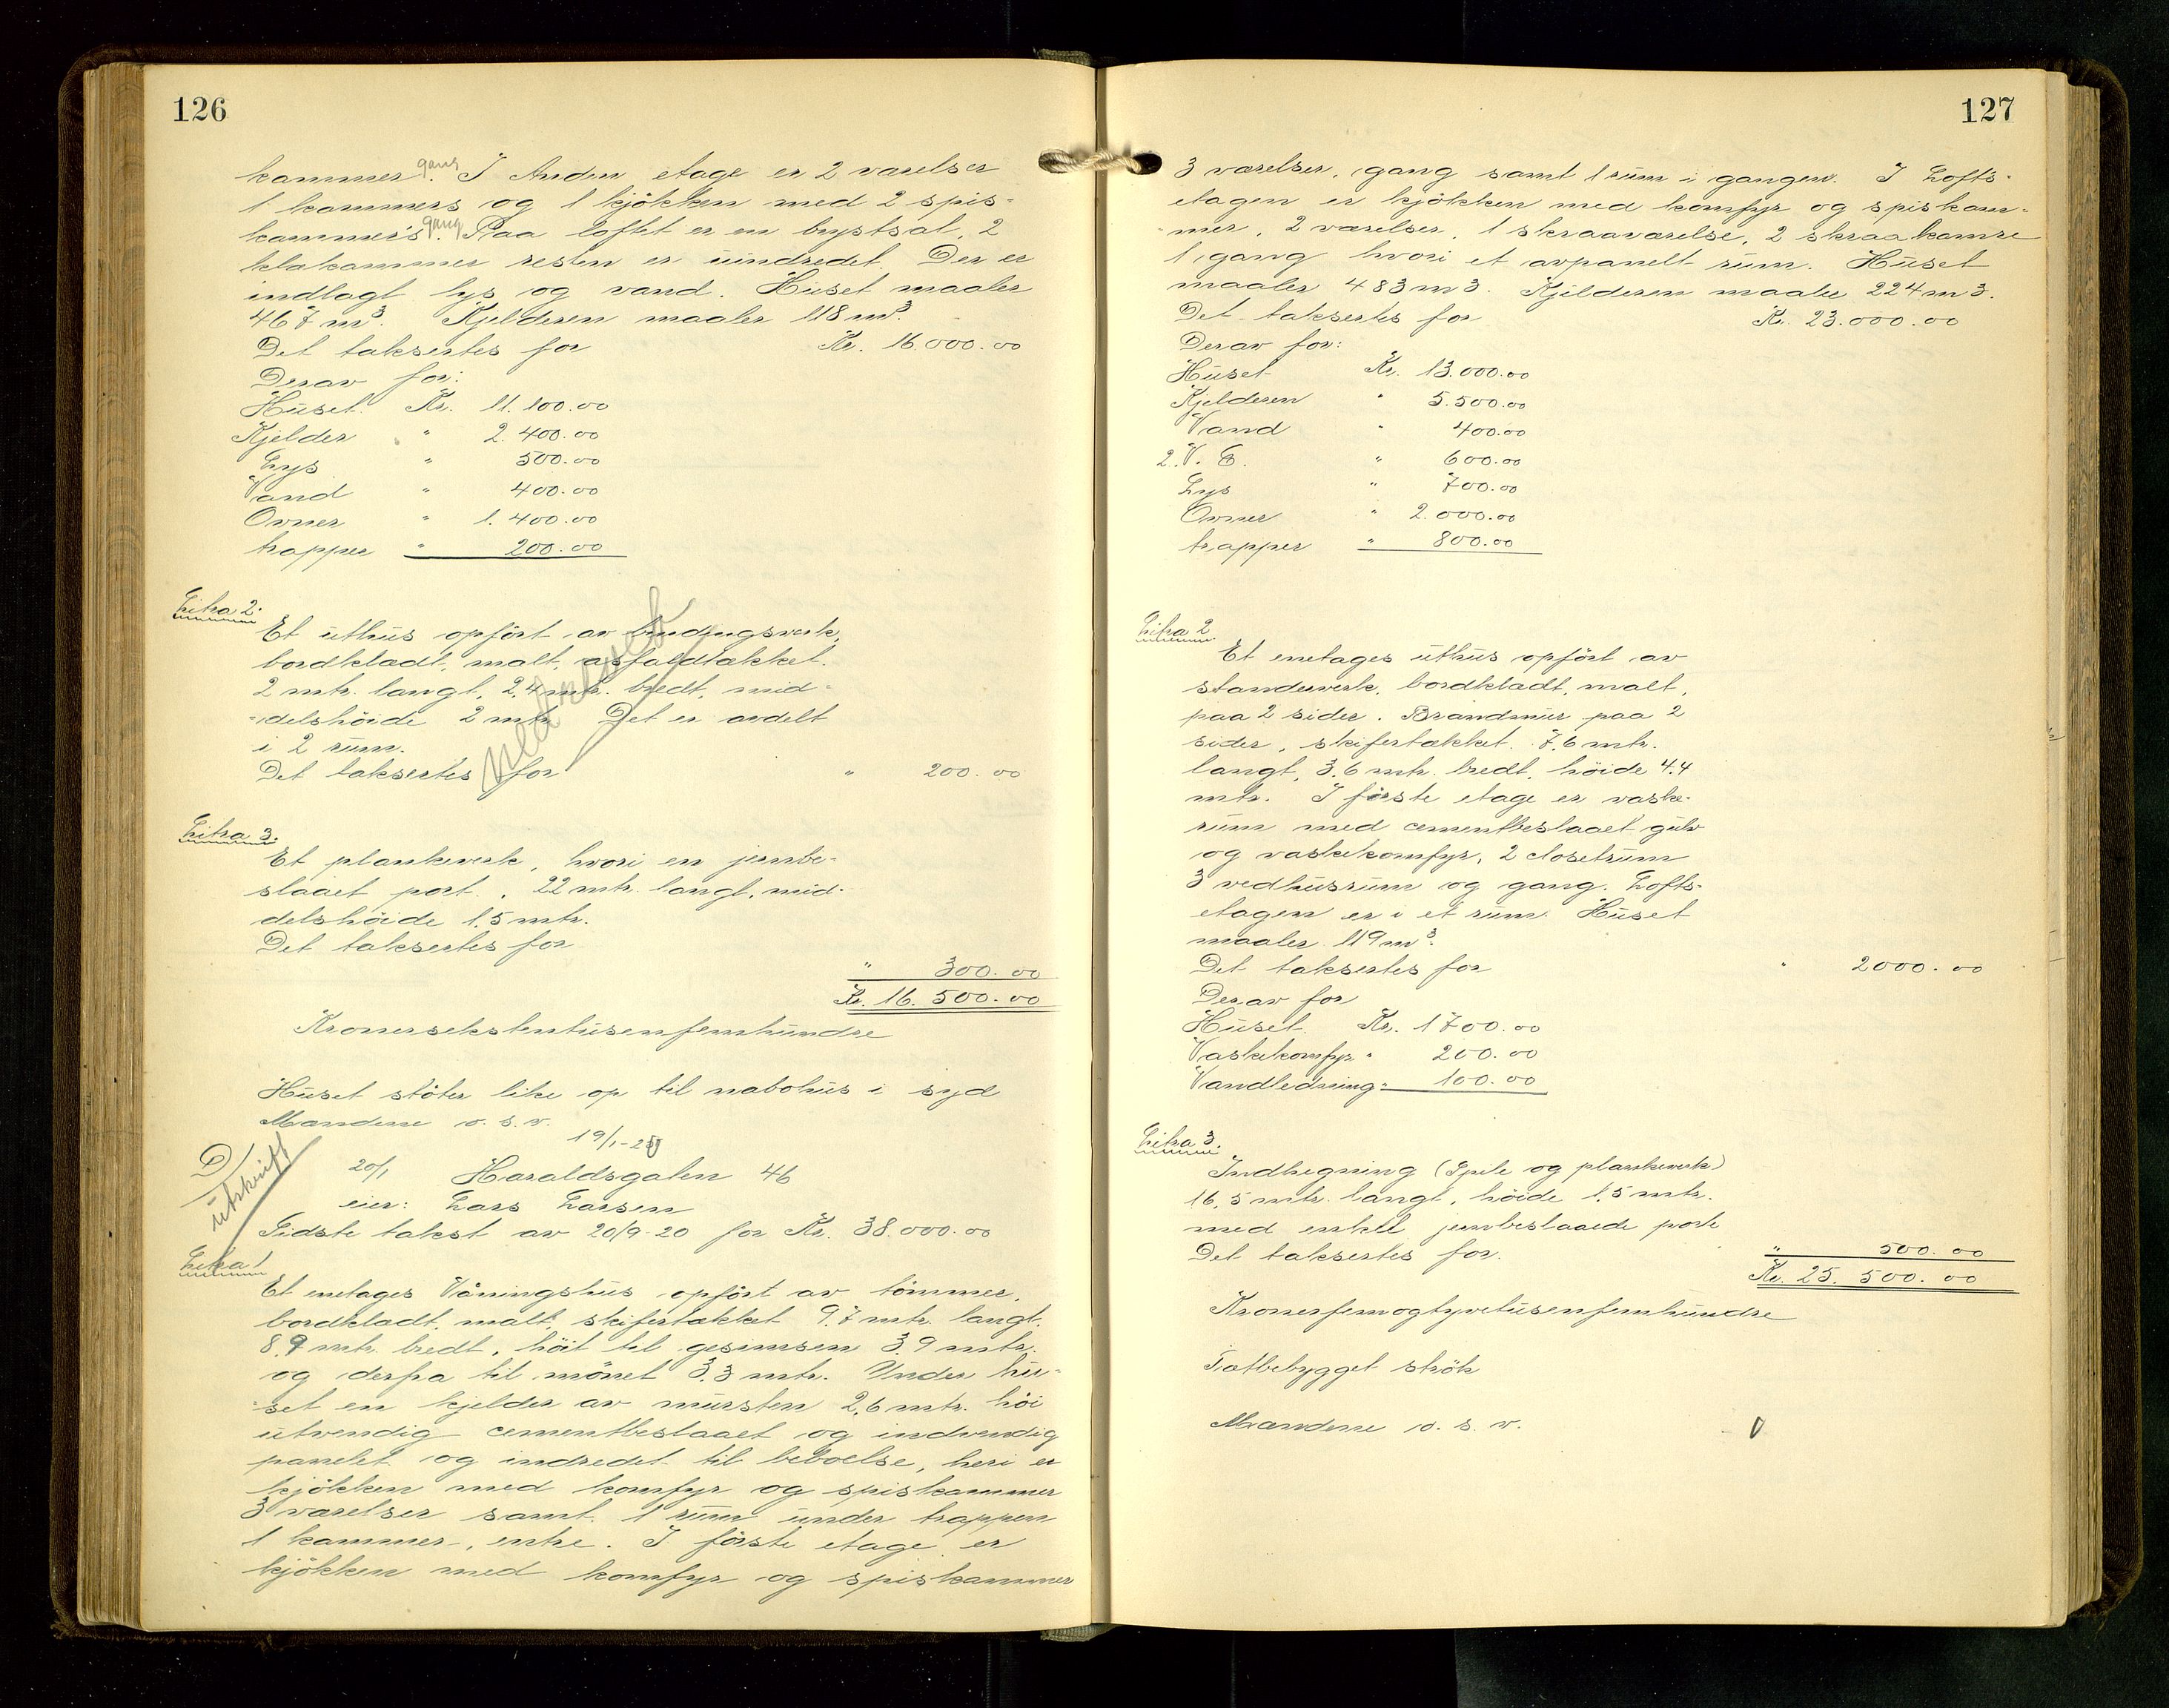 126
kammer gang. I Anden etage er 2 værelser
1 kammers og 1 kjökken med 2 spis-
kammers gang. Paa loftet er en brystsal, 2
klækammer resten er uindredet. Der er
indlagt lys og vand. Huset maaler
467 m³. Kjelderen maaler 118 m³.
Det taksertes for Kr. 16.000.00
Derav for:
Huset. Kr. 11.100.00
Kjelder " 2.400.00
Lys " 500.00
Vand " 400.00
Ovner " 1.400.00
trapper " 200.00
Litra 2.
Et uthus opfört av bindingsverk,
bordklædt, malt, asfaldtækket.
2 mtr. langt, 2,4 mtr. bredt, mid-
delshöide 2 mtr. Det er avdelt
i 2 rum.
Det taksertes for " 200.00
Litra 3.
Et plankeverk, hvori en jernbe-
slaaet port, 22 mtr. langt, mid-
delshöide 1,5 mtr.
Det taksertes for
" 300.00
Kr. 16.500.00
Kronersekstentusenfemhundre
Huset stöter like op til nabohus i syd
Mændene o. s. v.
19/1-25
D
utskrift
20/1 Haraldsgaten 46
eier: Lars Larsen
Sidste takst av 20/9-20 for Kr. 38.000.00
Litra 1
Et enetages Våningshus opfört av tömmer,
bordklædt, malt, skifertækket 9,7 mtr. langt.
8,9 mtr. bredt, höit til gesimsen 3,9 mtr.
og derfra til mönet 3,3 mtr. Under hu-
set en kjelder av mursten 2,6 mtr. höi
utvendig cementbeslaaet og indvendig
panelet og indredet til beboelse, heri er
kjökken med komfyr og spiskammer
3 værelser samt 1 rum under trappen
1 kammer, entre. I förste etage er
kjökken med komfyr og spiskammer
127
3 værelser, gang samt 1 rum i gangen. I Lofts-
etagen er kjökken med komfyr og spiskam-
mer, 2 værelser, 1 skraaværelse, 2 skraakamre
1 gang hvori et avpanelt rum. Huset
maaler 483 m3. Kjelderen maaler 224 m3.
Det taksertes for Kr. 23.000.00
Derav for:
Huset Kr. 13.000.00
Kjelderen " 5.500.00
Vand " 400.00
2. V. C. " 600.00
Lys " 700.00
Ovner " 2.000.00
trapper " 800.00
Litra 2
Et enetages uthus opfört av
standerverk, bordklædt, malt,
paa 2 sider. Brandmur paa 2
sider, skifertækket. 7,6 mtr.
langt, 3,6 mtr. bredt, höide 4,4
mtr. I förste etage er vaske-
rum med cementbeslaaet gulv
og vaskekomfyr, 2 closetrum
3 vedhusrum og gang. Lofts-
etagen er i et rum. Huset
maaler 119 m³.
Det taksertes for " 2000.00
Derav for
Huset. Kr. 1700.00
Vaskekomfyr " 200.00
Vandledning " 100.00
Litra 3.
Indhegning (Spile og plankeverk)
16,5 mtr. langt, höide 1,5 mtr.
med enkel jernbeslaaede port
Det taksertes for. " 500.00
Kr. 25.500.00
Kronerfemogtyvetusenfemhundre
Tætbebygget strök
Mændene o. s. v.